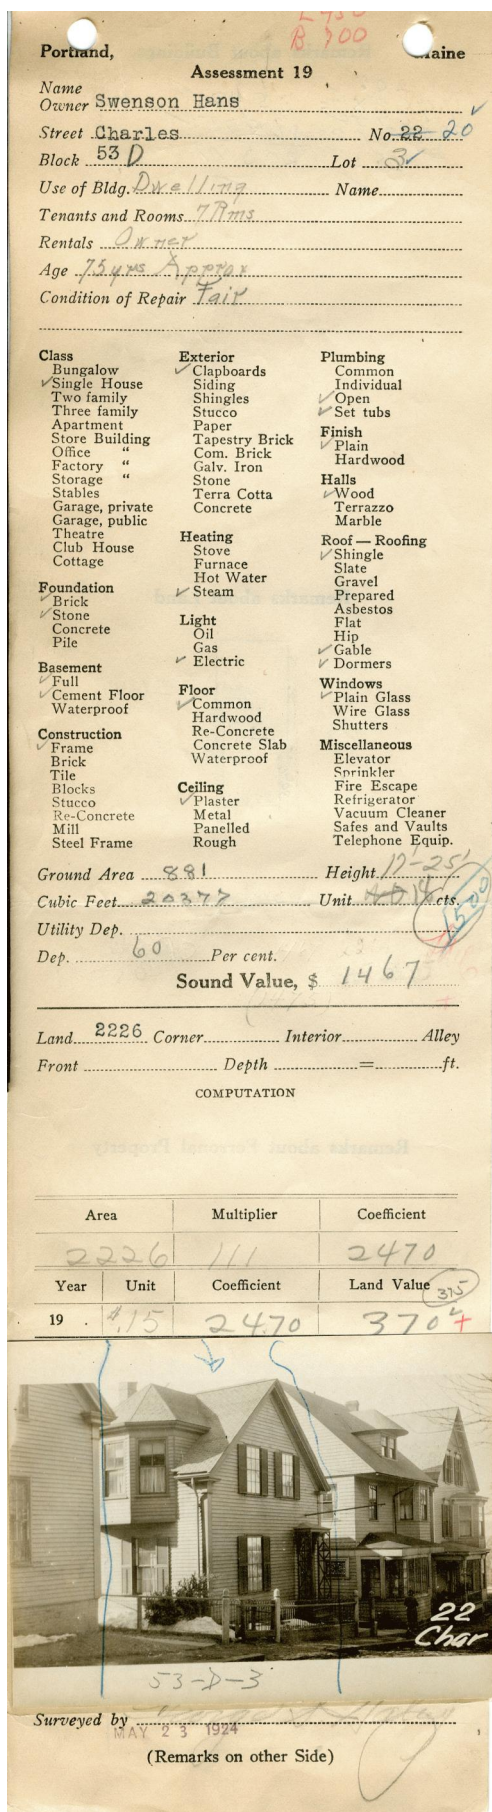 B 700
Portland, Maine
Assessment 19
Name
Owner Swenson Hans
Street Charles No 22 20
Block 53 D Lot 3
Use of Bldg. Dwelling Name
Tenants and Rooms 7 Rms
Rentals Owner
Age 75 yrs Approx
Condition of Repair Fair
Class
Bungalow
Single House
Two family
Three family
Apartment
Store Building
Office "
Factory "
Storage "
Stables
Garage, private
Garage, public
Theatre
Club House
Cottage
Foundation
Brick
Stone
Concrete
Pile
Basement
Full
Cement Floor
Waterproof
Construction
Frame
Brick
Tile
Blocks
Stucco
Re-Concrete
Mill
Steel Frame
Exterior
Clapboards
Siding
Shingles
Stucco
Paper
Tapestry Brick
Com. Brick
Galv. Iron
Stone
Terra Cotta
Concrete
Heating
Stove
Furnace
Hot Water
Steam
Light
Oil
Gas
Electric
Floor
Common
Hardwood
Re-Concrete
Concrete Slab
Waterproof
Ceiling
Plaster
Metal
Panelled
Rough
Plumbing
Common
Individual
Open
Set tubs
Finish
Plain
Hardwood
Halls
Wood
Terrazzo
Marble
Roof — Roofing
Shingle
Slate
Gravel
Prepared
Asbestos
Flat
Hip
Gable
Dormers
Windows
Plain Glass
Wire Glass
Shutters
Miscellaneous
Elevator
Sprinkler
Fire Escape
Refrigerator
Vacuum Cleaner
Safes and Vaults
Telephone Equip.
Ground Area 881 Height 17-25'
Cubic Feet 20377 Unit 18 cts.
1500
Utility Dep.
Dep. 60 Per cent.
Sound Value, $ 1467
Land 2226 Corner Interior Alley
Front Depth = ft.
COMPUTATION
Area Multiplier Coefficient
2226 111 2470
Year Unit Coefficient Land Value 375
19 . $.15 2470 370
22
Char
53-D-3
Surveyed by
MAY 23 1924
(Remarks on other Side)